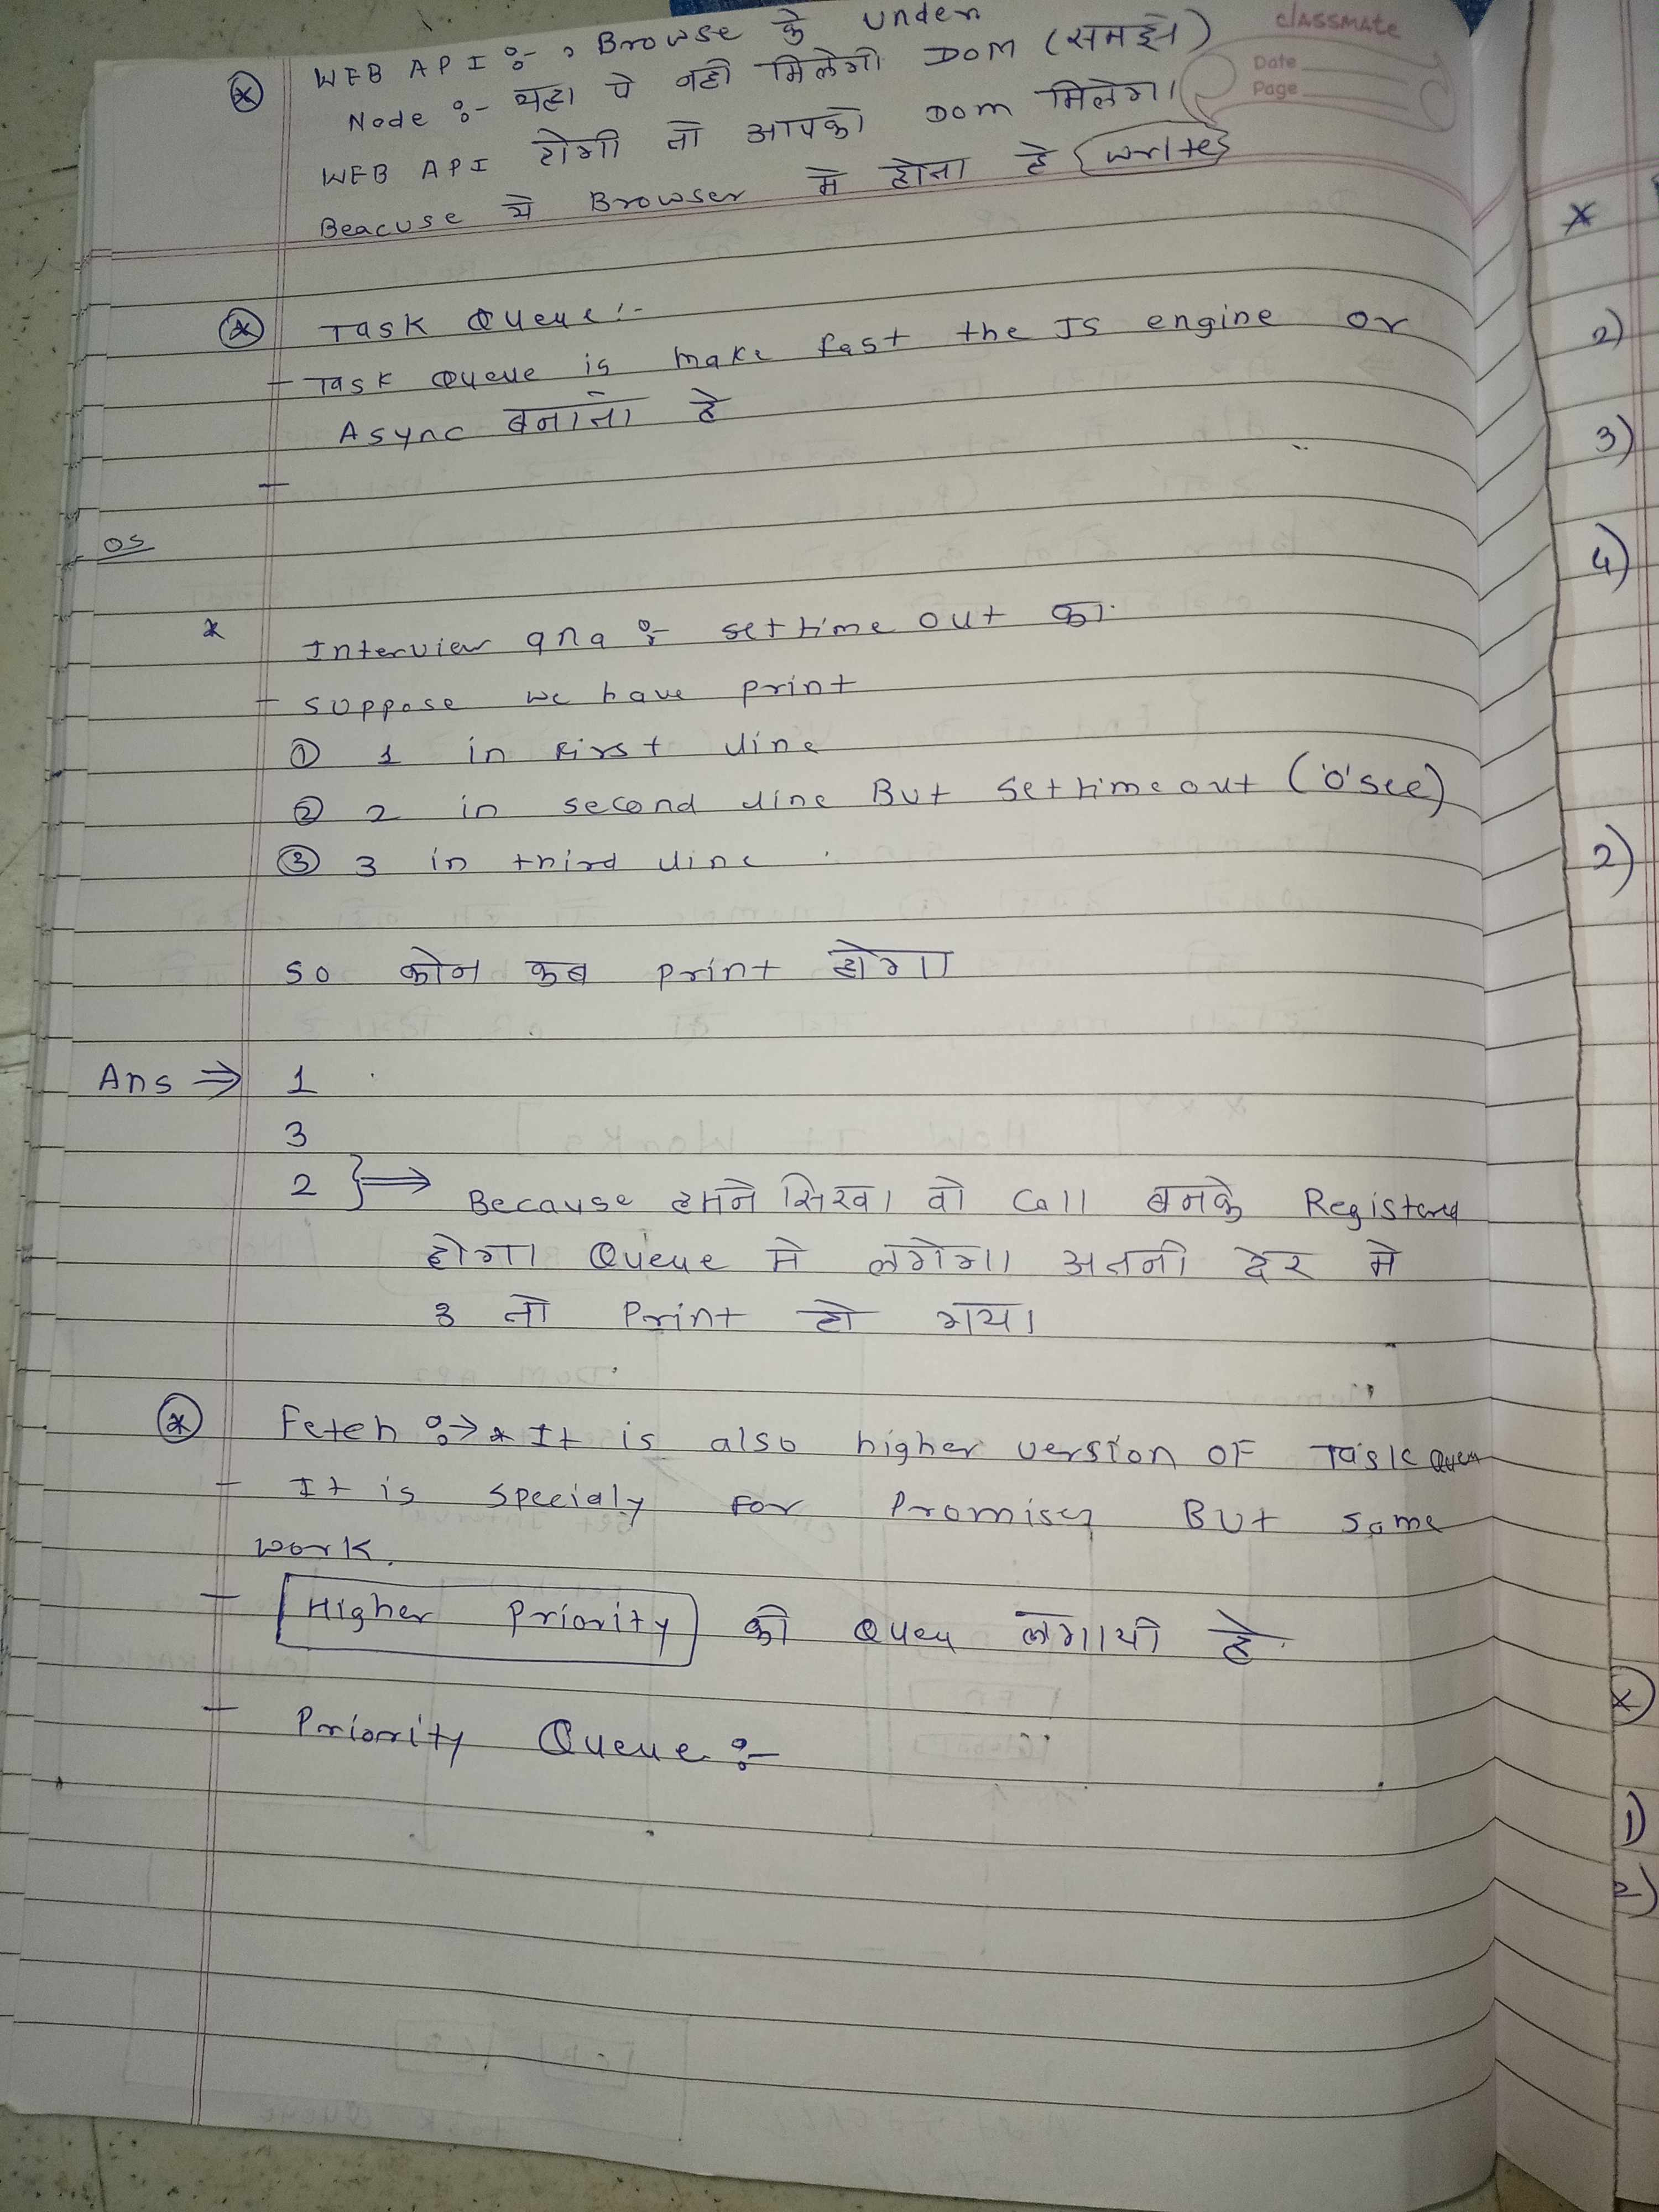 classmate
Date
Page
WEB API :- , Browse के under
Node :- यहा पे नही मिलेगी DOM (समझे)
WEB API होगी तो आपको DOM मिलेगा
Beacuse ये Browser मे होता है {write}
Task Queue :-
- Task Queue is make fast the JS engine or
Async बनाता है
-
OS
* Interview qna :- settime out का
- suppose we have print
① 1 in first line
② 2 in second line But settimeout ('0'sec)
③ 3 in third line
so कोन कब print होगा
Ans ⇒ 1
3
2 } ⇒ Because हमने सिखा वो call बनके Registerd
होगा Queue मे लगेगा अतनी देर मे
3 तो Print हो गया
Fetch :→ * It is also higher version OF Task Queu
- It is specialy For Promises But same
work.
- Higher Priority की Queu लगायी है.
- Priority Queue :-
*
2)
3)
4)
2)
1)
2)